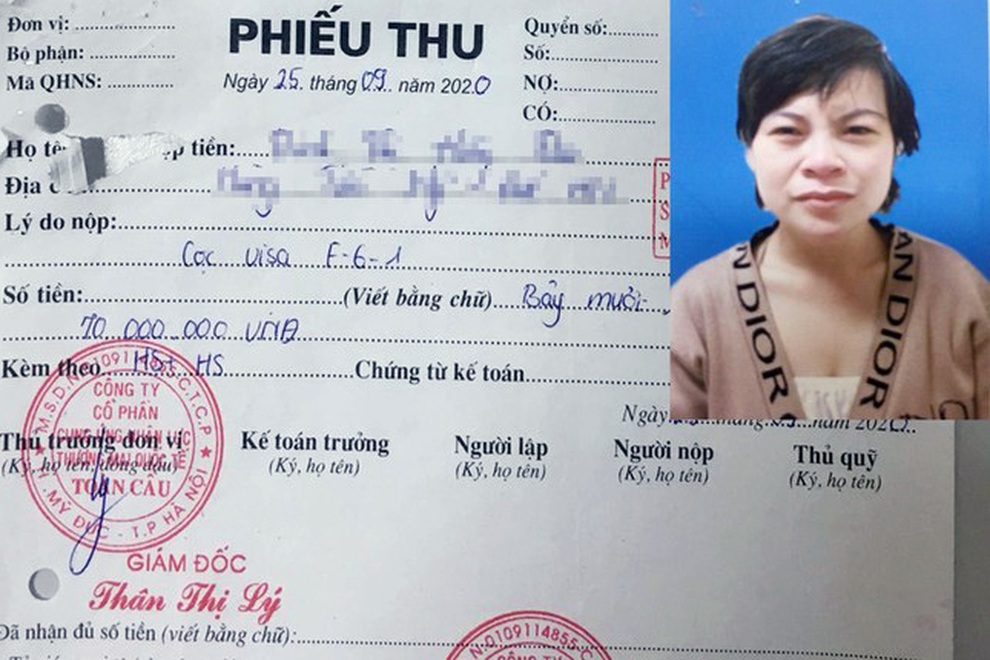 Đơn vị:
Bộ phận:
Mã QHNS:
PHIẾU THU
Ngày 25 tháng 09 năm 2020
Quyển số:
Số:
NỢ:
CÓ:
Họ tê
ộp tiền:
Địa c
Lý do nộp:
Cọc visa F-6-1
Số tiền: (Viết bằng chữ) Bảy mươi
70.000.000 VNĐ
Kèm theo HS Chứng từ kế toán
Ngày tháng năm 202
Thủ trưởng đơn vị
(Ký, họ tên, đóng dấu)
Kế toán trưởng
(Ký, họ tên)
Người lập
(Ký, họ tên)
Người nộp
(Ký, họ tên)
Thủ quỹ
(Ký, họ tên)
CÔNG TY
CỔ PHẦN
CUNG ỨNG NHÂN LỰC
THƯƠNG MẠI QUỐC TẾ
TOÀN CẦU
H.MỸ ĐỨC - T.P HÀ NỘI
GIÁM ĐỐC
Thân Thị Lý
Đã nhận đủ số tiền (viết bằng chữ):
N:0109114855-C
CÔNG TY
AN DIOR
AN DIOR